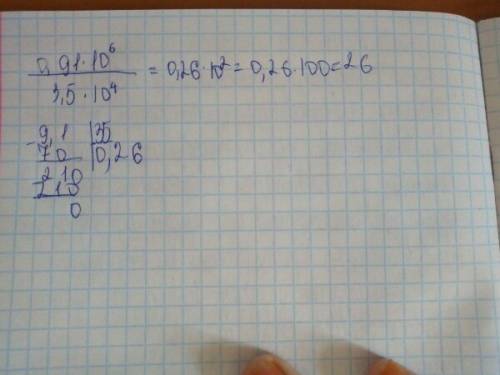 0,91·10⁶
3,5·10⁴
= 0,26·10² = 0,26·100 = 26
9,1 |35
70 |0,26
210
210
0